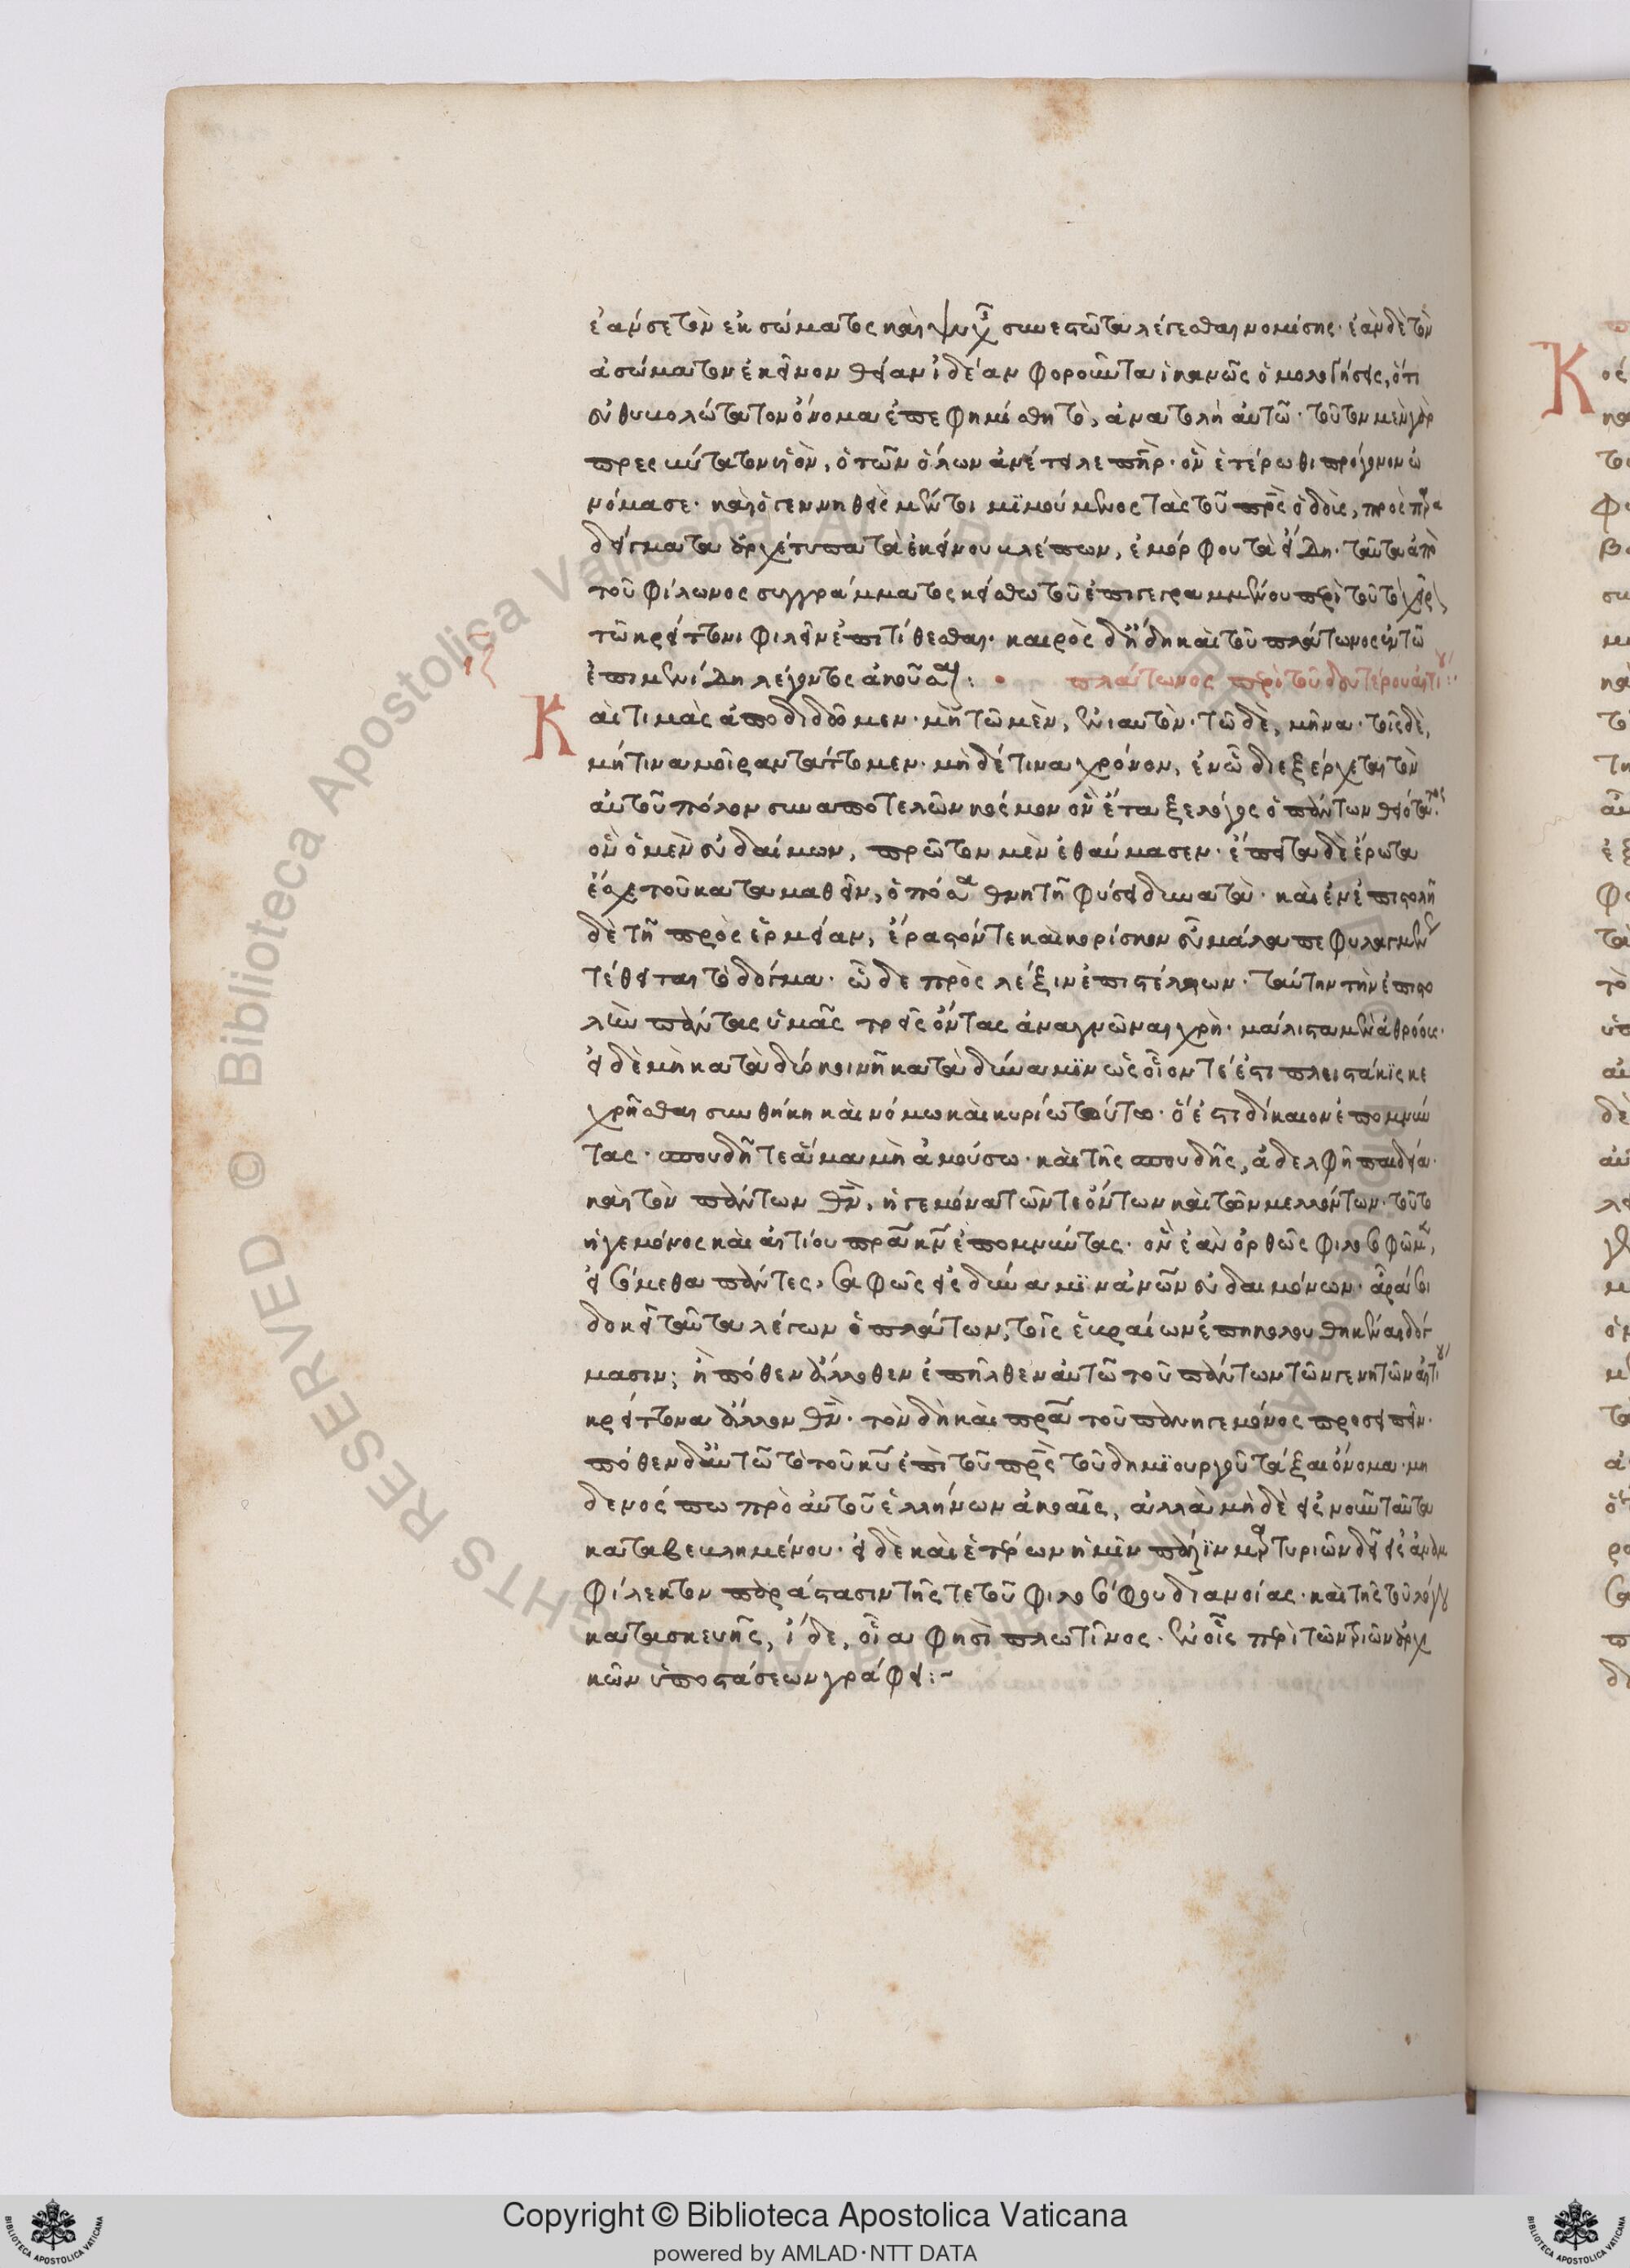 ἐὰν γε τὸν ἐκ σώματος καὶ ψυχῆς συνεστῶτα λέγεσθαι νομίσῃς· ἐὰν δὲ τὸν
ἀσώματον ἐκεῖνον θείαν ἰδέαν φοροῦντα ἱκανῶς ὁμολογήσεις, ὅτι
εὐθυβολώτατον ὄνομα ἐπεφημίσθη τὸ, ἀνατολὴ αὐτῶ· τοῦτον μὲν γὰρ
πρεσβύτατον υἱὸν, ὁ τῶν ὅλων ἀνέτειλε πηρ· ὃν ἑτέρωθι πρωτόγονον ὠ
νόμασε· καὶ ὁ γεννηθεὶς μέντοι μϊμούμενος τὰς τοῦ πρς ὁδοὺς, πρὸς παρα
δείγματα ἀρχέτυπα τὰ ἐκείνου βλέπων, ἐμόρφου τὰ εἴδη· ταῦτα ἀπὸ
τοῦ φίλωνος συγγράμματος κείσθω τοῦ ἐπιγεγραμμένου περὶ τοῦ τὸ χεῖρ
τῶ κρείττονι φιλεῖν ἐπιτίθεσθαι· καιρὸς δ' ἤδη καὶ τοῦ πλάτωνος ἐν τῶ
ἐπινομίδη λέγοντος ἀκοῦσαι:
πλάτωνος περὶ τοῦ δευτέρου αἰτίου:
ιζ
Καὶ τιμὰς ἀποδιδῶμεν· μὴ τῶ μὲν, ἐνιαυτὸν· τῶ δὲ, μῆνα· τοῖς δὲ,
μήτινα μοῖραν τάττομεν· μὴ δέ τινα χρόνον, ἐν ὧ διεξέρχεται τὸν
αὐτοῦ πόλον συναποτελῶν κόσμον ὃν ἔταξε λόγος ὁ πάντων θειότατος
ὃν ὁ μὲν εὐδαίμων, πρῶτον μὲν ἐθαύμασεν· ἔπειτα δὲ ἔρωτα
ἔσχε τοῦ καταμαθεῖν, ὁπόσα θνητῆ φύσει δυνατὰ· καὶ ἐν ἐπιστολῆ
δὲ τῆ πρὸς ἑρμείαν, ἔραστόν τε καὶ κορίσκον εὖ μάλα πεφυλαγμέν
τέθειται τὸ δόγμα· ὧδε πρὸς λέξιν ἐπιστέλλων· ταύτην τὴν ἐπιστο
λὴν πάντας ὑμᾶς τρεῖς ὄντας ἀναγνῶναι χρὴ· μάλιστα μὲν ἀθρόους·
εἰ δὲ μὴ κατὰ δύο κοινῆ κατὰ δύναμϊν ὡς οἷόν τέ ἐστι πλειστάκϊς κε
χρῆσθαι συνθήκη καὶ νόμω καὶ κυρίω τούτω· ὅ ἐστι δίκαιον ἐπομνύν
τας· σπουδῆ τε ἅμα μὴ ἀμούσω· καὶ τῆς σπουδῆς, ἀδελφῆ παιδεία·
καὶ τὸν πάντων θν, ἡγεμόνα τῶν τε ὄντων καὶ τῶν μελλόντων· τοῦ τε
ἡγεμόνος καὶ αἰτίου πρα κν ἐπομνύντας· ὃν ἐὰν ὀρθῶς φιλοσοφῶμεν,
εἰσόμεθα πάντες, σαφῶς εἰς δύναμϊν ἀνων εὐδαιμόνων· ἆρά σοι
δοκεῖ ταῦτα λέγων ὁ πλάτων, τοῖς ἑβραίων ἐπηκολουθηκέναι δόγ
μασιν; ἢ πόθεν ἄλλοθεν ἐπῆλθεν αὐτῶ τοῦ πάντων τῶν γενητῶν αἰτίου
κρείττονα ἄλλον θν· τὸν δὴ καὶ πρα τοῦ πάντων ἡγεμόνος προσειπεῖν·
πόθεν δ' αὐτῶ τὸ τοῦ κυ ἐπὶ τοῦ πρς τοῦ δημϊουργοῦ τάξαι ὄνομα· μη
δενός πω πρὸ αὐτοῦ ἑλλήνων ἀκοαῖς, ἀλλὰ μὴ δὲ εἰς νοῦν ταῦτα
καταβεβλημένου· εἰ δὲ καὶ ἑτέρων ἡμῖν πάλϊν μαρτυριῶν δεῖ εἰς ἀναμ
φίλεκτον παράστασιν τῆς τε τοῦ φιλοσόφου διανοίας· καὶ τῆς τοῦ λόγου
κατασκευῆς, ἴδε, οἷα φησὶ πλωτῖνος· ἐν οἷς περὶ τῶν τριῶν ἀρχ
κῶν ὑποστάσεων γράφει:~
© Biblioteca Apostolica Vaticana ALL RIGHTS RESERVED
Copyright © Biblioteca Apostolica Vaticana
powered by AMLAD·NTT DATA